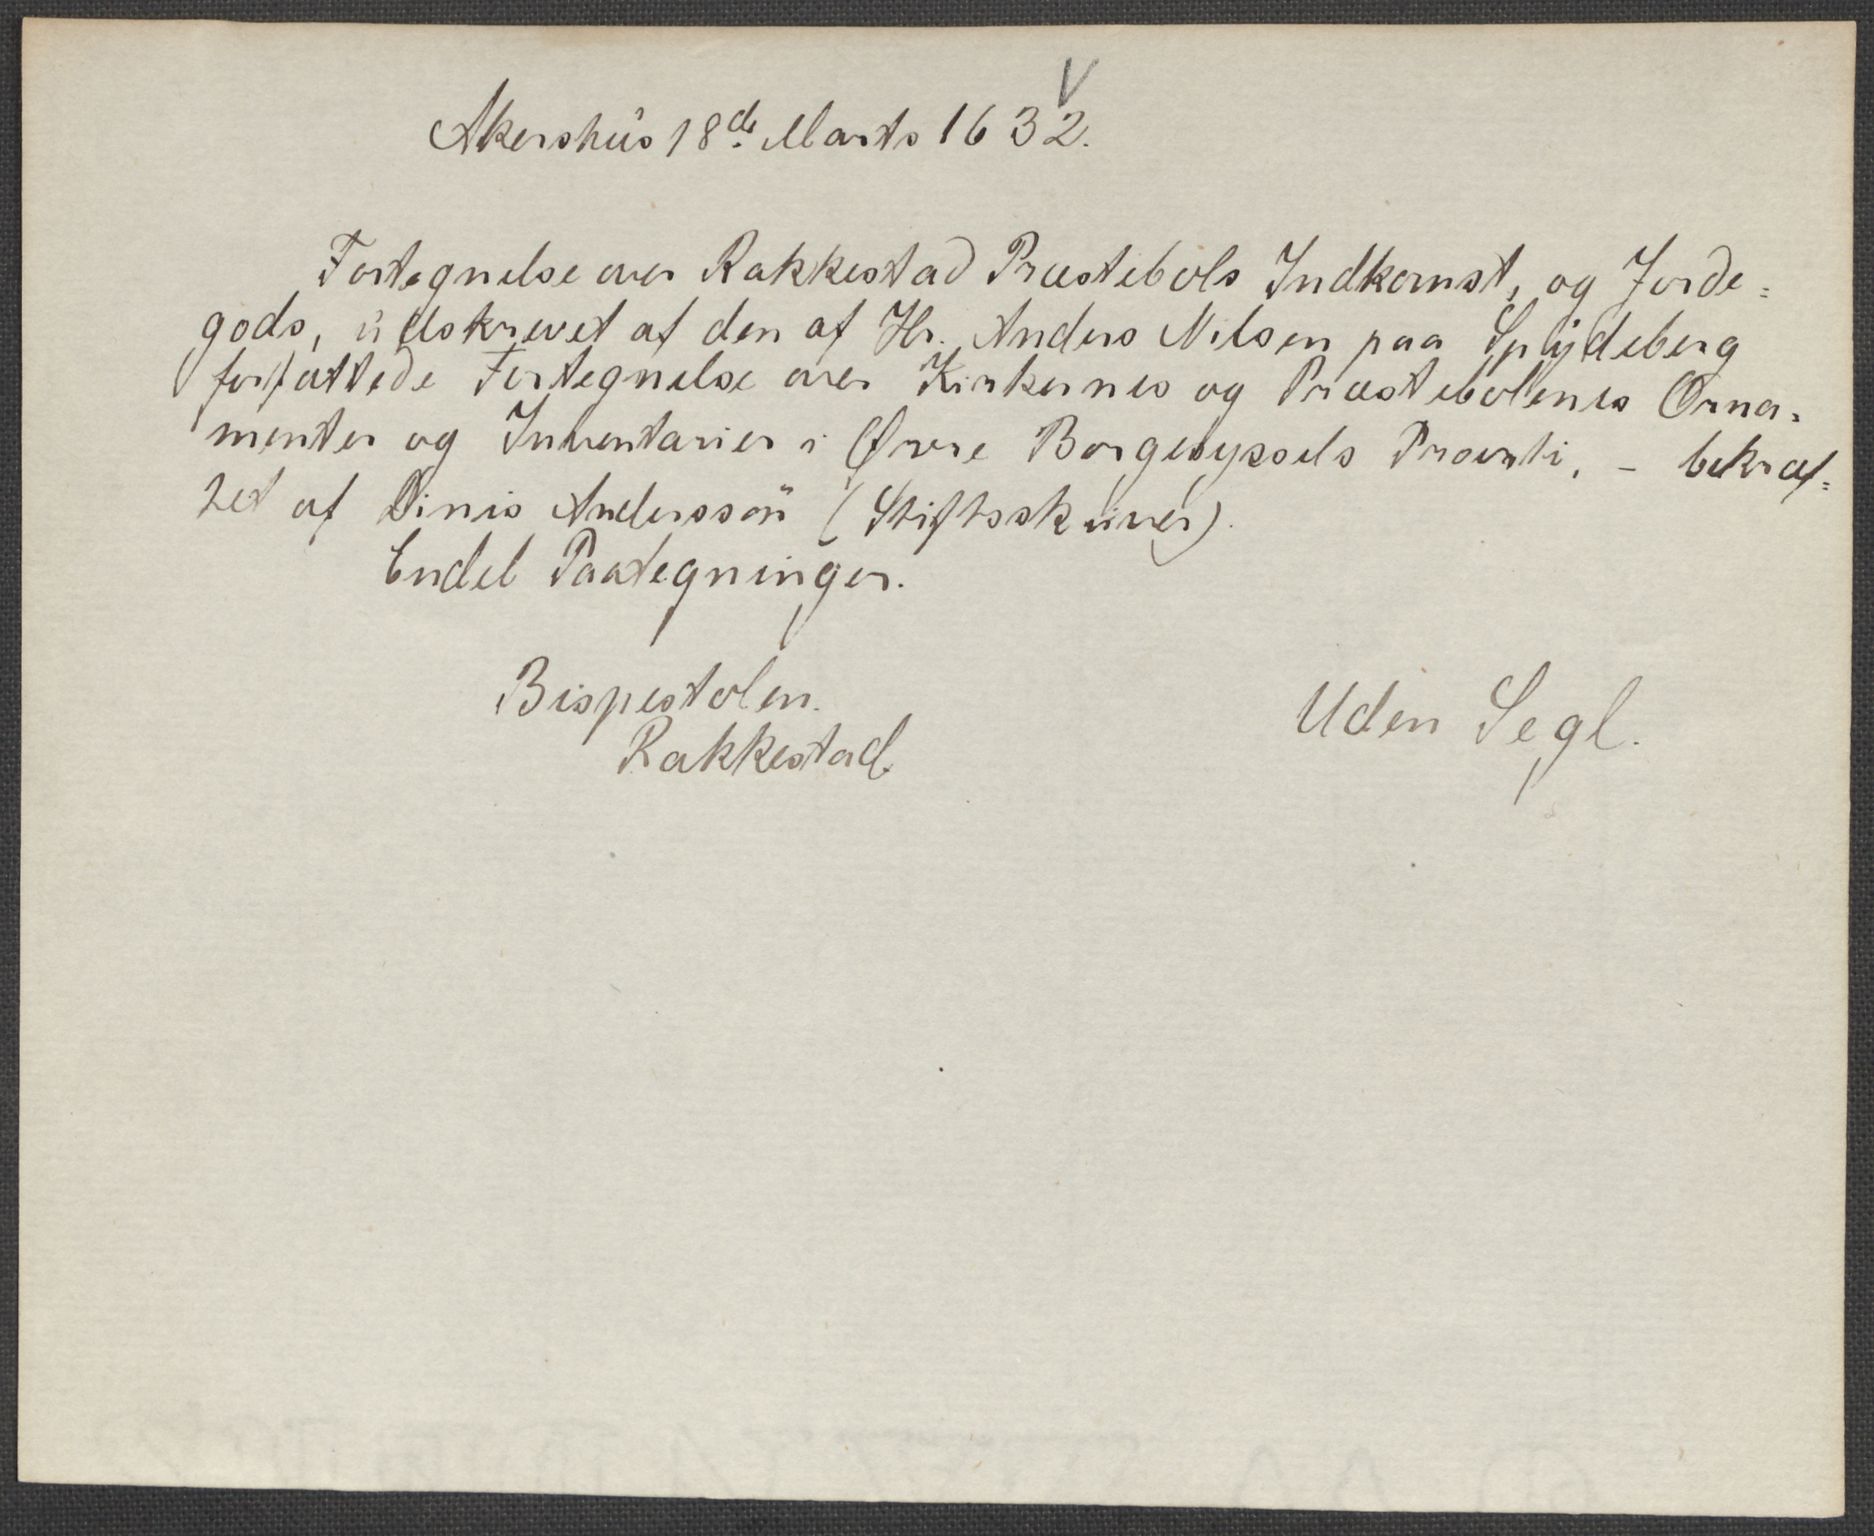 Akershus 18de Marts 1632.
Fortegnelse over Rakkestad Præstebols Indkomst, og Jorde=
gods, udskrevet af den af Hr. Anders Nilsen paa Spydeberg
forfattede Fortegnelse over Kirkernes og Præstebolenes Orna=
menter og Inventarier i Øvre Borgesyssels Provsti, - bekræf=
tet af Dinis Anderssön (Stiftsskriver).
Endel Paategninger.
Bispestolen.
Rakkestad.
Uden Segl.